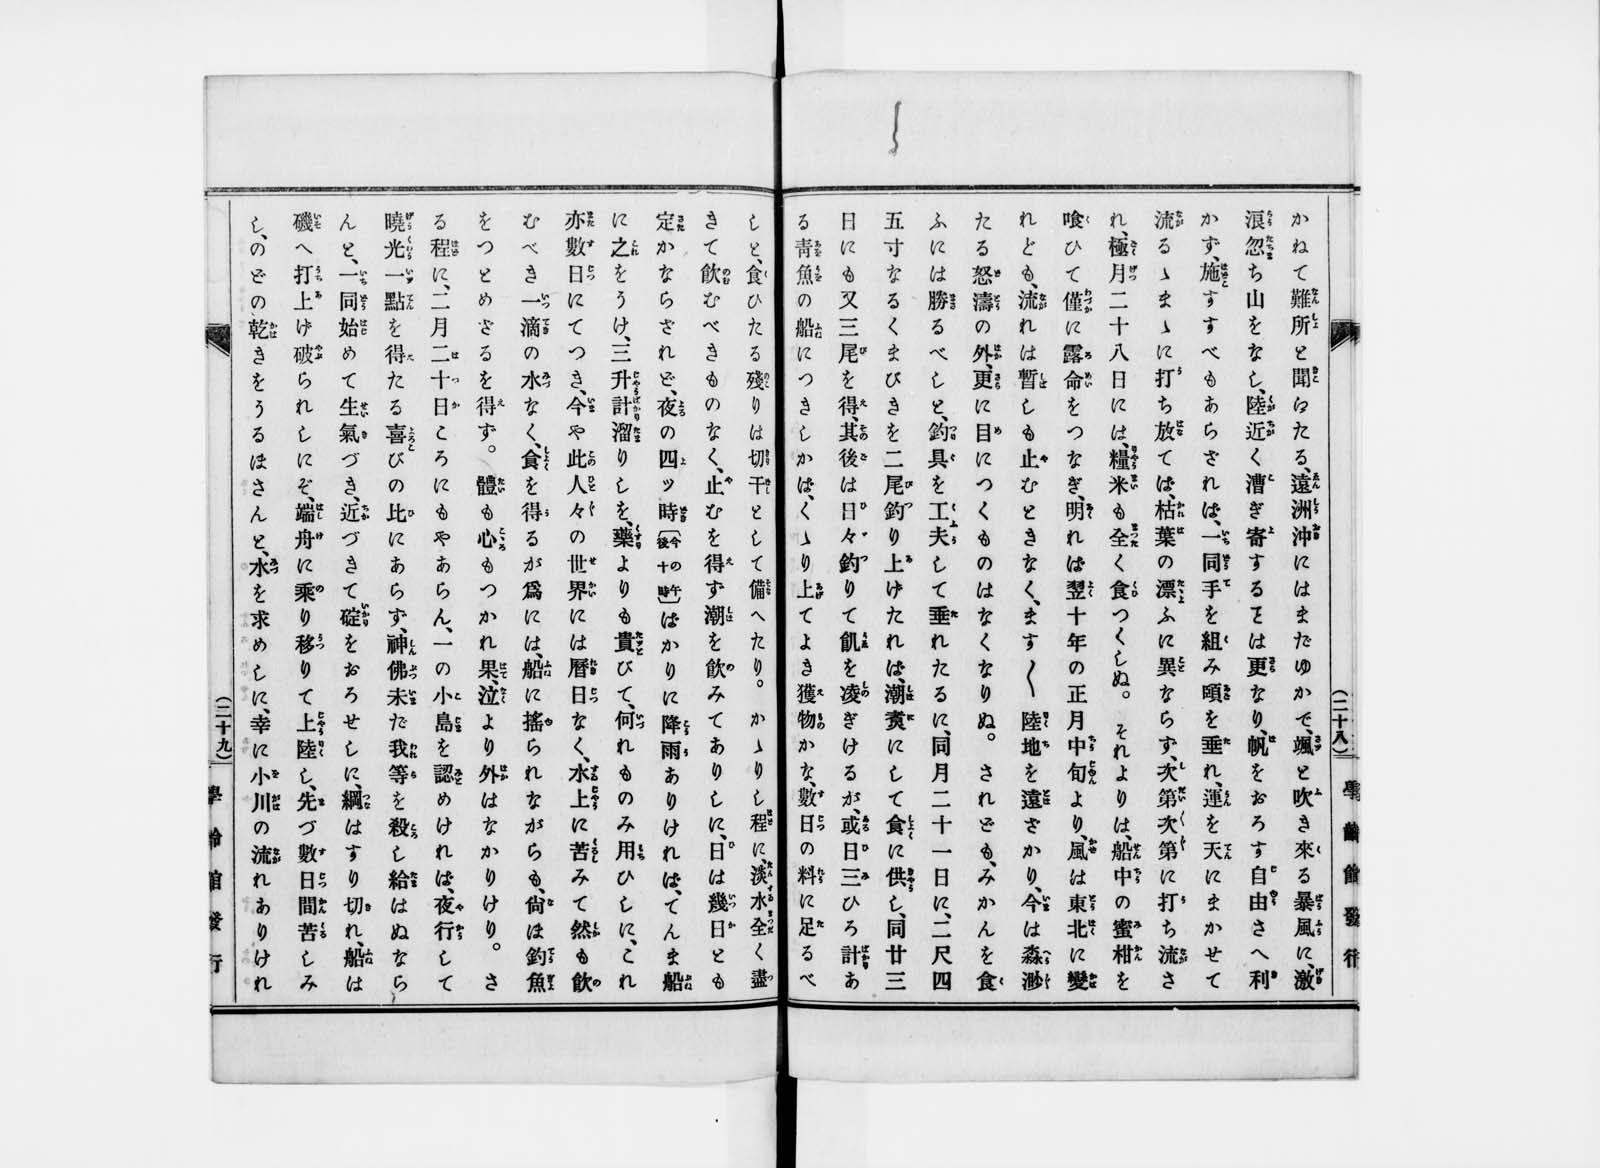 かねて難所と聞えたる、遠洲沖にはまだゆかで、颯と吹き來る暴風に、激
浪忽ち山をなし、陸近く漕ぎ寄するとは更なり、帆をおろす自由さへ利
かず、施すすべもあらざれば、一同手を組み頭を垂れ、運を天にまかせて
流るゝまゝに打ち放てば、枯葉の漂ふに異ならず、次第次第に打ち流さ
れ、極月二十八日には、糧米も全く食つくしぬ。それよりは、船中の蜜柑を
喰ひて僅に露命をつなぎ、明れば翌十年の正月中旬より、風は東北に變
れども、流れは暫しも止むときなく、ます〳〵陸地を遠ざかり、今は淼渺
たる怒濤の外、更に目につくものはなくなりぬ。されども、みかんを食
ふには勝るべしと、釣具を工夫して垂れたるに、同月二十一日に、二尺四
五寸なるくまびきを二尾釣り上げたれば、潮煑にして食に供し、同廿三
日にも又三尾を得、其後は日々釣りて飢を凌ぎけるが、或日三ひろ計あ
る靑魚の船につきしかば、くゝり上てよき獲物かな、數日の料に足るべ
(二十八)
學齡館發行
しと、食ひたる殘りは切干として備へたり。かゝりし程に、淡水全く盡
きて飮むべきものなく、止むを得ず潮を飮みてありしに、日は幾日とも
定かならざれど、夜の四ッ時(今の午後十時)ばかりに降雨ありければ、てんま船
に之をうけ、三升計溜りしを、藥よりも貴びて、何れものみ用ひしに、これ
亦數日にてつき、今や此人々の世界には曆日なく、水上に苦みて然も飮
むべき一滴の水なく、食を得るが爲には、船に搖られながらも、尙ほ釣魚
をつとめざるを得ず。體も心もつかれ果、泣より外はなかりけり。さ
る程に、二月二十日ころにもやあらん、一の小島を認めければ、夜行して
曉光一點を得たる喜びの比にあらず、神佛未だ我等を殺し給はぬなら
んと、一同始めて生氣づき、近づきて碇をおろせしに、綱はすり切れ、船は
磯へ打上げ破られしにぞ、端舟に乘り移りて上陸し、先づ數日間苦しみ
し、のどの乾きをうるほさんと、水を求めしに、幸に小川の流れありけれ
(二十九)
學齡館發行